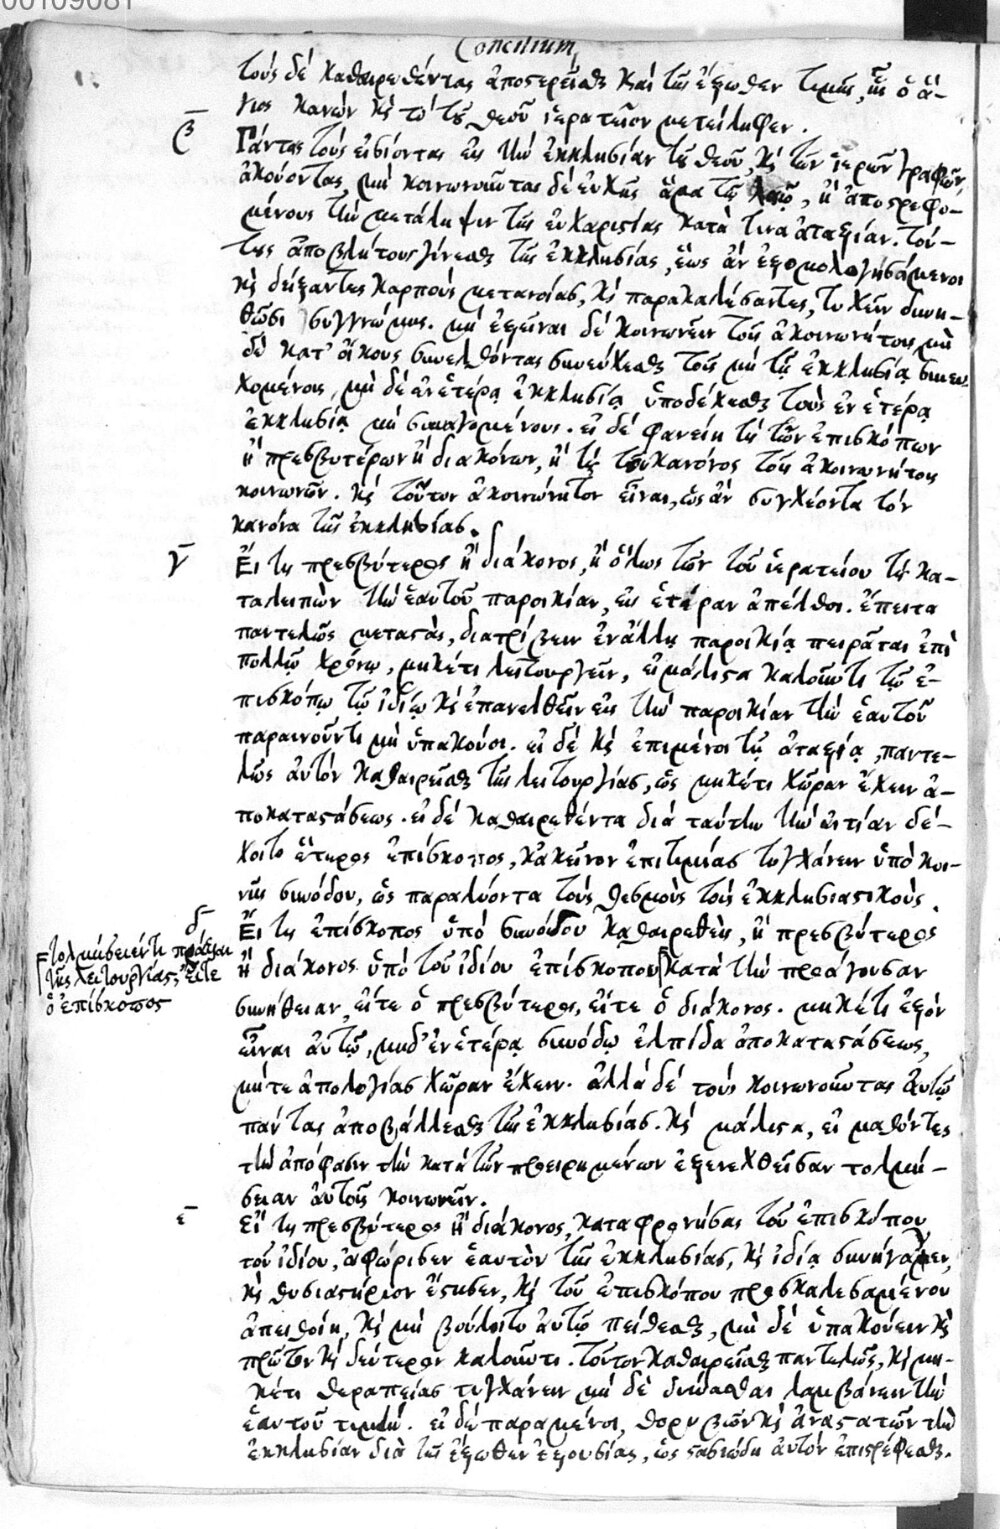 00109081
Concilium
τοὺς δὲ καθαιρεθέντας ἀποστερεῖσθαι καὶ τῆς ἔξωθεν τιμῆς, ἧς ὁ ἅ-
γιος κανὼν καὶ τὸ τοῦ θεοῦ ἱερατεῖον μετείληφεν.
β Πάντας τοὺς εἰσιόντας εἰς τὴν ἐκκλησίαν τοῦ θεοῦ, καὶ τῶν ἱερῶν γραφῶν
ἀκούοντας, μὴ κοινωνοῦντας δὲ εὐχῆς ἅμα τῷ λαῷ, ἢ ἀποστρεφο-
μένους τὴν μετάληψιν τῆς εὐχαριστίας κατὰ τινα ἀταξίαν. τού-
τους ἀποβλήτους γίνεσθαι τῆς ἐκκλησίας, ἕως ἂν ἐξομολογησάμενοι
καὶ δείξαντες καρποὺς μετανοίας, καὶ παρακαλέσαντες, τυχεῖν δυνη-
θῶσι συγγνώμης. μὴ ἐξεῖναι δὲ κοινωνεῖν τοῖς ἀκοινωνήτοις μὴ
δὲ κατ' οἴκους συνελθόντας συνεύχεσθαι τοῖς μὴ τῇ ἐκκλησίᾳ συνευ-
χομένοις, μὴ δὲ ἐν ἑτέρᾳ ἐκκλησίᾳ ὑποδέχεσθαι τοὺς ἐν ἑτέρᾳ
ἐκκλησίᾳ μὴ συναγομένους. εἰ δὲ φανείη τὶς τῶν ἐπισκόπων
ἢ πρεσβυτέρων ἢ διακόνων, ἢ τὶς τοῦ κανόνος τοῖς ἀκοινωνήτοις
κοινωνῶν. καὶ τοῦτον ἀκοινώνητον εἶναι, ὡς ἂν συγχέοντα τὸν
κανόνα τῆς ἐκκλησίας.
γ Εἴ τις πρεσβύτερος ἢ διάκονος, ἢ ὅλως τῶν τοῦ ἱερατείου τὶς κα-
ταλειπὼν τὴν ἑαυτοῦ παροικίαν, εἰς ἑτέραν ἀπέλθοι. ἔπειτα
παντελῶς μεταστὰς, διατρίβειν ἐν ἄλλῃ παροικίᾳ πειρᾶται ἐπὶ
πολλῷ χρόνῳ, μηκέτι λειτουργεῖν, εἰ μάλιστα καλοῦντι τῷ ἐ-
πισκόπῳ τῷ ἰδίῳ καὶ ἐπανελθεῖν εἰς τὴν παροικίαν τὴν ἑαυτοῦ
παραινοῦντι μὴ ὑπακούοι. εἰ δὲ καὶ ἐπιμένοι τῇ ἀταξίᾳ, παντε-
λῶς αὐτὸν καθαιρεῖσθαι τῆς λειτουργίας, ὡς μηκέτι χώραν ἔχειν ἀ-
ποκαταστάσεως. εἰ δὲ καθαιρεθέντα διὰ ταύτην τὴν αἰτίαν δέ-
χοιτο ἕτερος ἐπίσκοπος, κἀκεῖνον ἐπιτιμίας τυγχάνειν ὑπὸ κοι-
νῆς συνόδου, ὡς παραλύοντα τοὺς θεσμοὺς τοὺς ἐκκλησιαστικούς.
δ Εἴ τις ἐπίσκοπος ὑπὸ συνόδου καθαιρεθεὶς, ἢ πρεσβύτερος
ἢ διάκονος ὑπὸ τοῦ ἰδίου ἐπισκόπου κατὰ τὴν προάγουσαν
τολμήσειέν τι πρᾶξαι
τῆς λειτουργίας, εἴτε
ὁ ἐπίσκοπος
συνήθειαν, εἴτε ὁ πρεσβύτερος, εἴτε ὁ διάκονος. μηκέτι ἐξὸν
εἶναι αὐτῷ, μηδ' ἐν ἑτέρᾳ συνόδῳ ἐλπίδα ἀποκαταστάσεως,
μήτε ἀπολογίας χώραν ἔχειν. ἀλλὰ δὲ τοὺς κοινωνοῦντας αὐτῷ
πάντας ἀποβάλλεσθαι τῆς ἐκκλησίας. καὶ μάλιστα, εἰ μαθόντες
τὴν ἀπόφασιν τὴν κατὰ τῶν προειρημένων ἐξενεχθεῖσαν τολμή-
σειαν αὐτοῖς κοινωνεῖν.
ε Εἴ τις πρεσβύτερος ἢ διάκονος, καταφρονήσας τοῦ ἐπισκόπου
τοῦ ἰδίου, ἀφώρισεν ἑαυτὸν τῆς ἐκκλησίας, καὶ ἰδίᾳ συνήγαγεν,
καὶ θυσιαστήριον ἔστησεν, καὶ τοῦ ἐπισκόπου προσκαλεσαμένου
ἀπειθοίη, καὶ μὴ βούλοιτο αὐτῷ πείθεσθαι, μὴ δὲ ὑπακούειν καὶ
πρῶτον καὶ δεύτερον καλοῦντι. τοῦτον καθαιρεῖσθαι παντελῶς, καὶ μη-
κέτι θεραπείας τυγχάνειν μὴ δὲ δύνασθαι λαμβάνειν τὴν
ἑαυτοῦ τιμήν. εἰ δὲ παραμένοι, θορυβῶν καὶ ἀναστατῶν τὴν
ἐκκλησίαν διὰ τῆς ἔξωθεν ἐξουσίας, ὡς στασιώδη αὐτὸν ἐπιστρέφεσθαι.